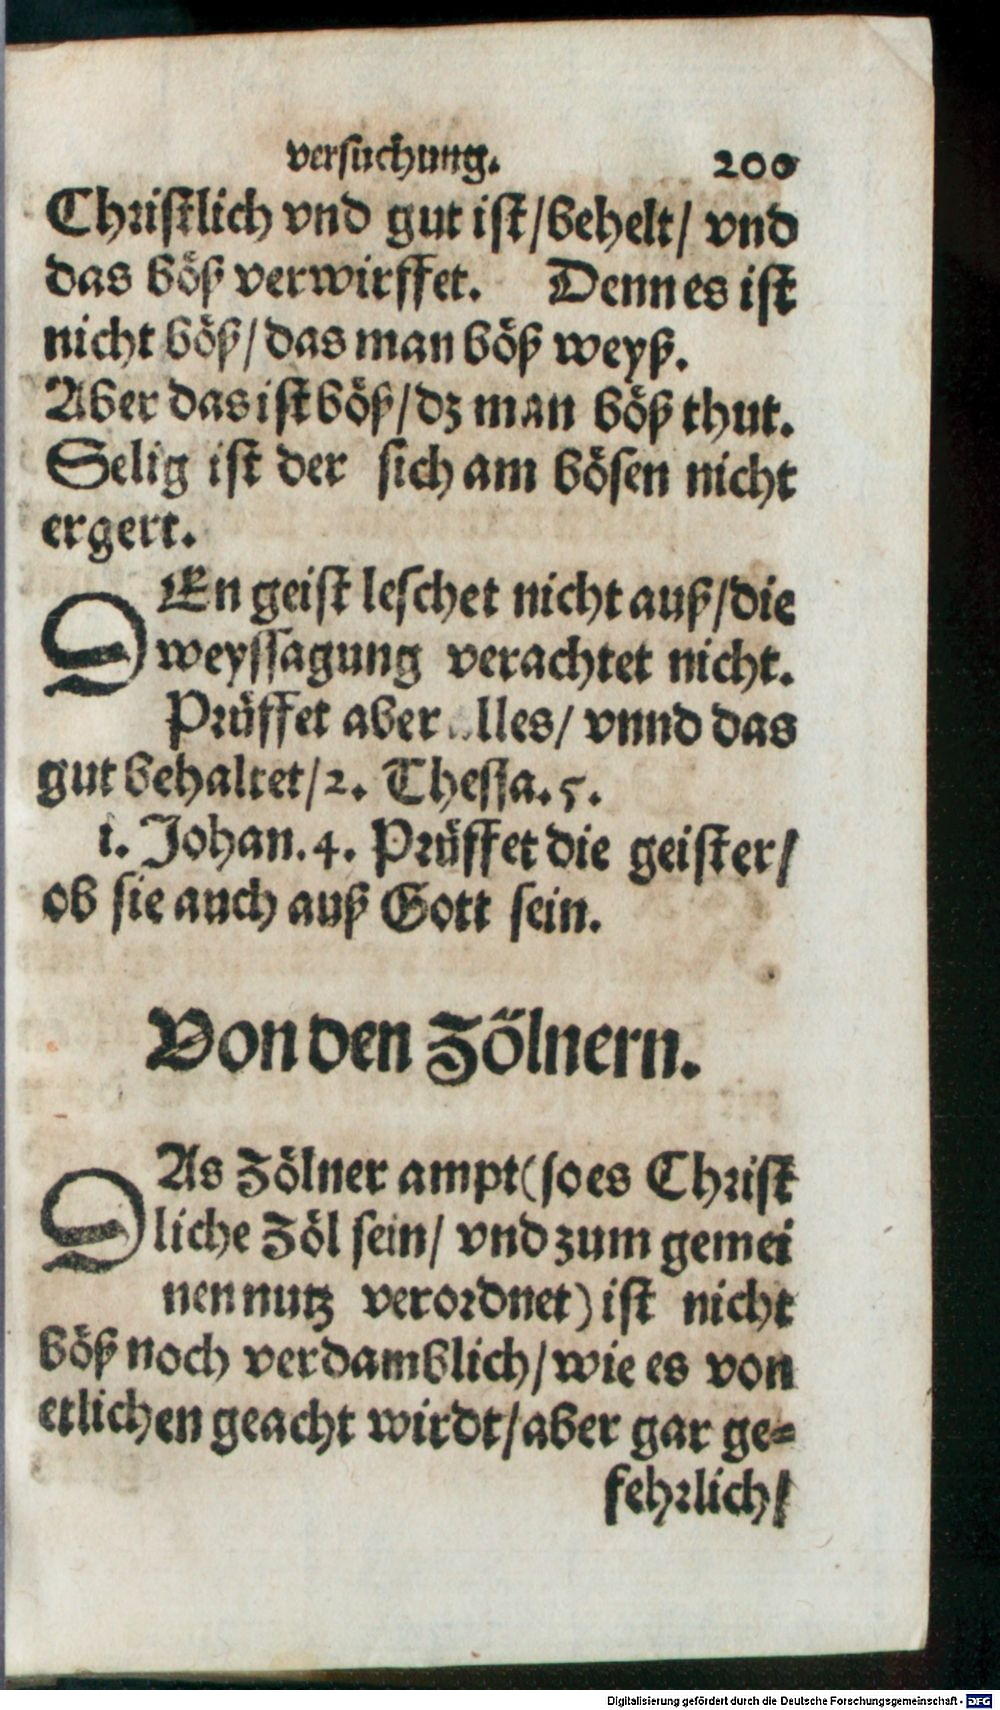 versuchung. 200
Christlich vnd gut ist/behelt/ vnd
das böß verwirffet. Denn es ist
nicht böß/das man böß weyß.
Aber das ist böß/dz man böß thut.
Selig ist der sich am bösen nicht
ergert.
DEn geist leschet nicht auß/die
weyssagung verachtet nicht.
Prüffet aber alles/ vnnd das
gut behaltet/2. Thessa. 5.
1. Johan. 4. Prüffet die geister/
ob sie auch auß Gott sein.
Von den Zölnern.
DAs Zölner ampt(so es Christ
liche Zöl sein/ vnd zum gemei
nen nutz verordnet) ist nicht
böß noch verdamblich/wie es von
etlichen geacht wirdt/aber gar ge=
fehrlich/
Digitalisierung gefördert durch die Deutsche Forschungsgemeinschaft - DFG